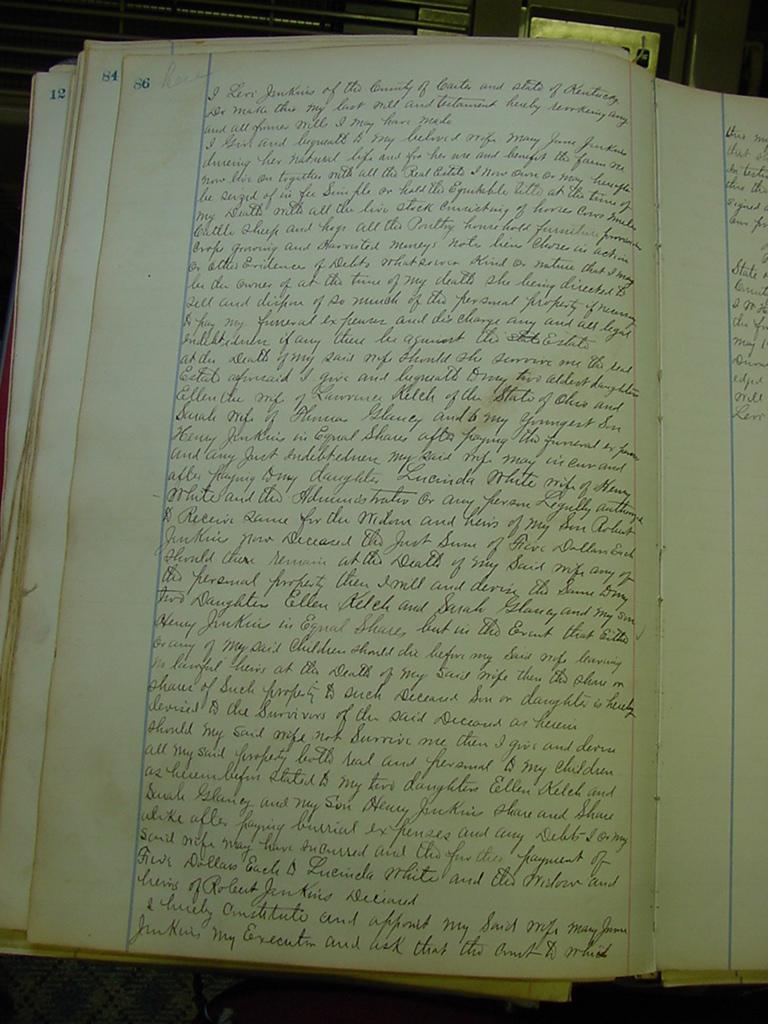 12
84
86
here
I Levi Jenkins of the County of Carter and state of Kentucky
Do make this my last will and testament hereby revoking any
and all former wills I may have made
I Give and bequeath to my beloved wife Mary Jane Jenkins
dureing her natural life and for her use and benefit the farm we
now live on together with all the Real Estate I now own or may hereafter
be seized of in fee Simple or hold the Equitable title at the time of
my Death with all the live stock consisting of horses Cows mules
Cattle sheep and hogs all the Poultry household furniture provisions
crops growing and Harvisted moneys notes liens Choses in action
or other Evidences of Debts whatsoever Kind or nature that I may
be the owner of at the time of my death she being directed to
sell and dispose of so much of the personal property if necessary
to pay my funeral expenses and discharge any and all legal
indebtedness if any there be against the Estate
at the Death of my said wife should she survive me the real
Estate aforesaid I give and bequeath to my two oldest daughters
Ellen the wife of Lawrence Kelch of the State of Ohio and
Sarah wife of Thomas Glancy and to my youngest Son
Henry Jenkins in Equal Shares after paying the funeral expenses
and any Just indebtedness my said wife may incur and
after paying to my daughter Lucinda White wife of Henry
White and the Administrator or any person Legally authorized
to Receive same for the Widow and heirs of my Son Robert
Jenkins now Deceased the Just Sum of Five Dollars Each
should there remain at the Death of my Said wife any of
the personal property then I will and devise the Same to my
two Daughters Ellen Kelch and Sarah Glancy and my son
Henry Jenkins in Equal Shares but in the Event that Either
or any of my said Children should die before my Said wife leaving
no lawful heirs at the Death of my Said wife then the share or
shares of Such property to such Deceased Son or daughter is hereby
devised to the Survivors of the said Deceased as herein
should my said wife not Survive me then I give and devise
all my said property both real and personal to my children
as hereinbefore stated to my two daughters Ellen Kelch and
Sarah Glancy and my Son Henry Jenkins share and Share
alike after paying burrial expenses and any Debts I or my
said wife may have incurred and the further payment of
Five Dollars Each to Lucinda White and the Widow and
heirs of Robert Jenkins Deceased
I hereby Constitute and appoint my Said wife Mary Jane
Jenkins my Executor and ask that the Court to which
this my
that
in testi
this the
signed a
our
State
County
I
the
may 1
Duri
edged
will
Levi